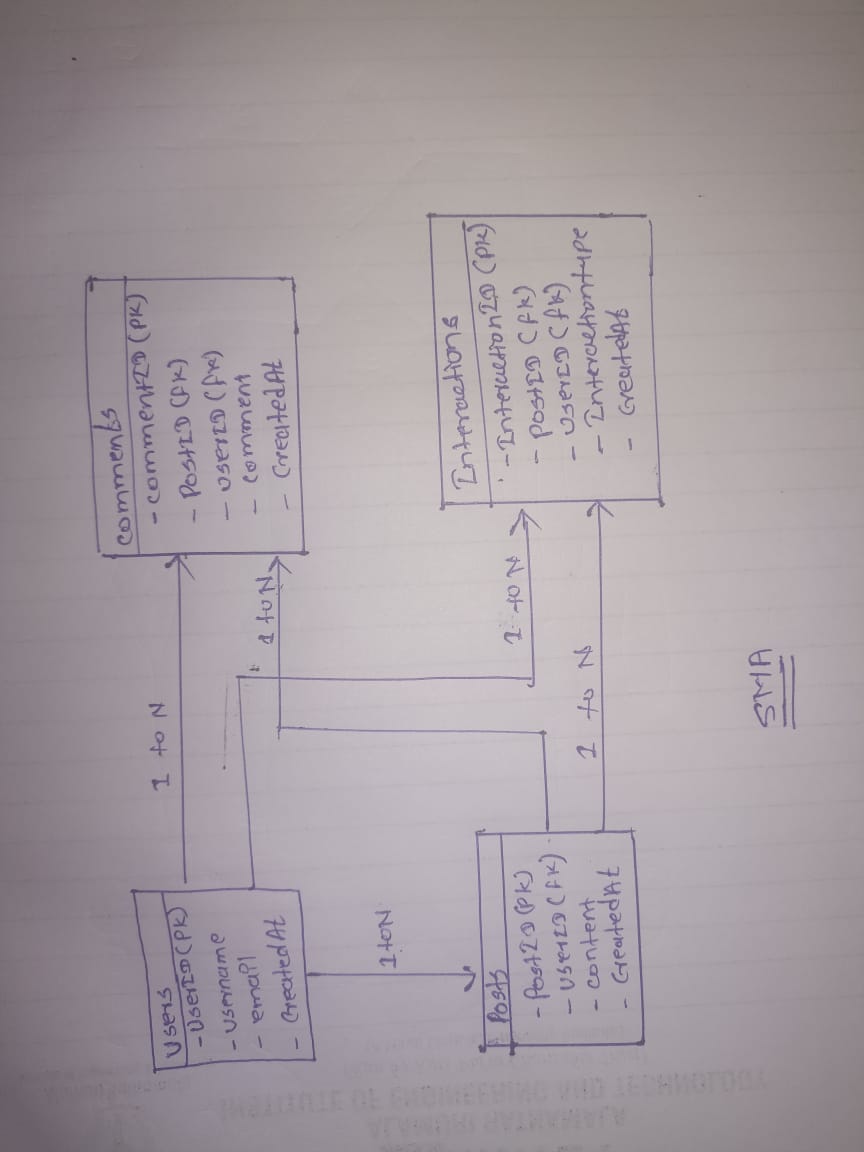 Users
- UserID (PK)
- Username
- email
- CreatedAt
1 to N
1 to N
Comments
- CommentID (PK)
- PostID (fk)
- UserID (fk)
- Comment
- CreatedAt
1 to N
Posts
- PostID (PK)
- UserID (fk)
- content
- CreatedAt
1 to N
1 to N
Interactions
- InteractionID (PK)
- PostID (fk)
- UserID (fk)
- Interactiontype
- CreatedAt
SMA
ALAMURI RATNAMALA
INSTITUTE OF ENGINEERING AND TECHNOLOGY